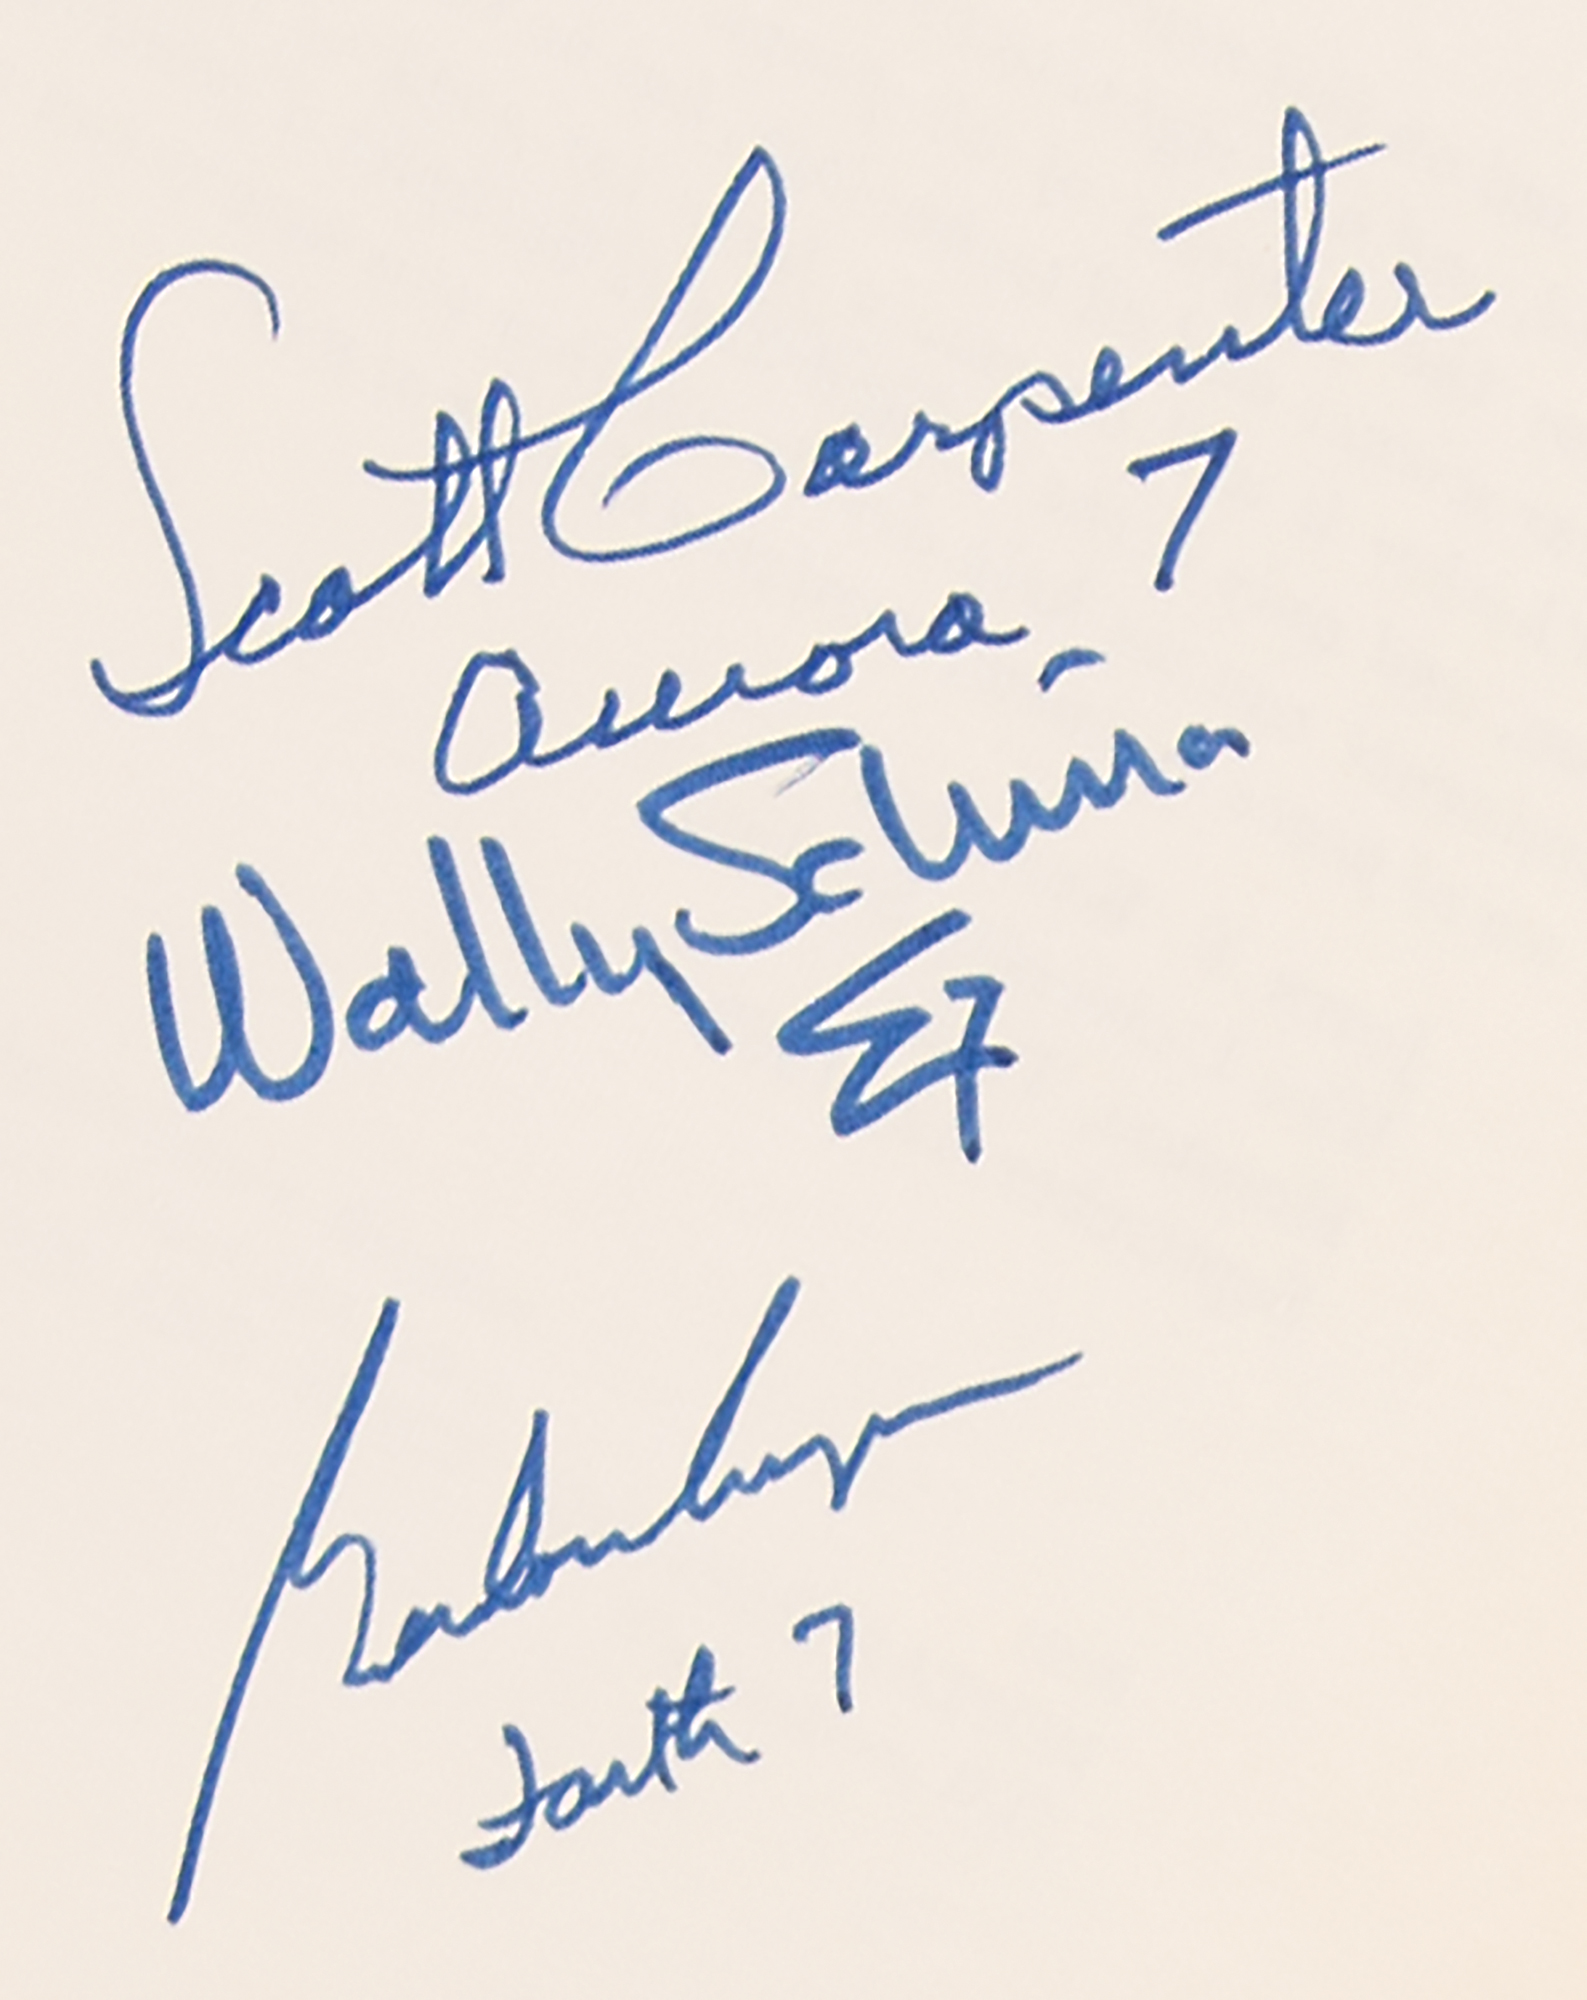 Scott Carpenter
Aurora 7
Wally Schirra
Σ7
Gordon Cooper
Faith 7